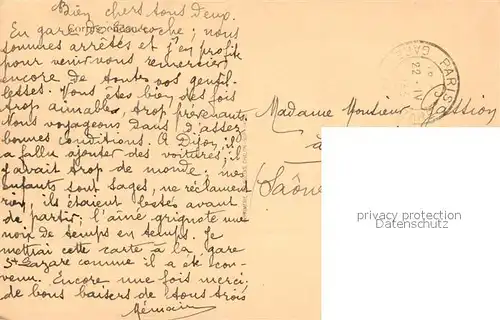 Bien chers tous deux.
En gare de Laroche; nous
sommes arrêtés et j'en profite
pour venir vous remercier
encore de toutes vos gentil-
lesses. Vous êtes bien des fois
trop aimables, trop prévenants.
Nous voyageons dans d'assez
bonnes conditions. A Dijon, il
a fallu ajouter des voitures; il
y avait trop de monde; mes
enfants sont sages, ne réclament
rien, ils étaient lestés avant
de partir; l'aîné grignote une
noix de temps en temps. Je
mettrai cette carte à la gare
St Lazare comme il a été con-
venu. Encore une fois merci,
de bons baisers de tous trois
Madame Monsieur Gassion
à
Saône
PARIS
GARE
22 - IV
privacy protection
Datenschutz